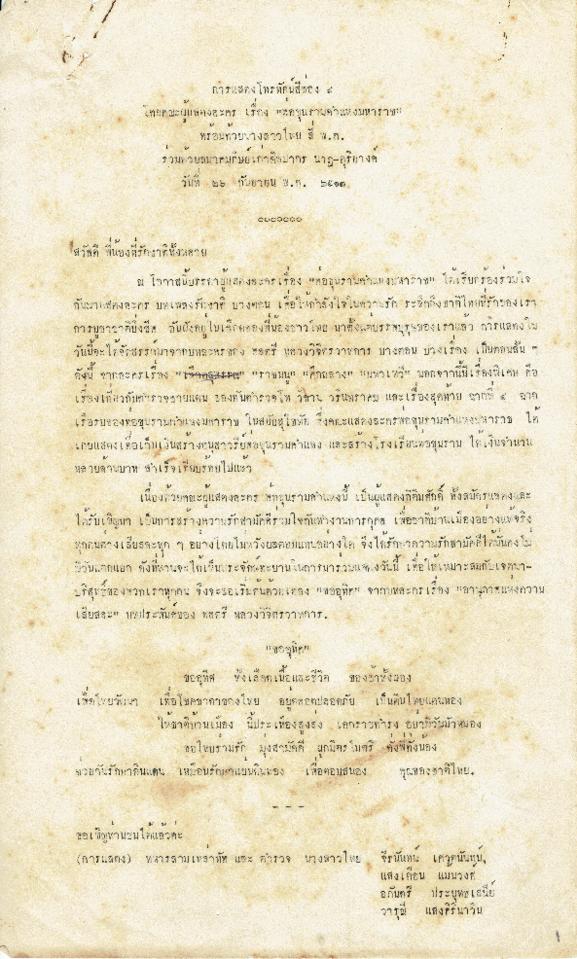 การแสดงโทรทัศน์สีช่อง ๙
โดยคณะผู้แสดงละคร เรื่อง "พ่อขุนรามคำแหงมหาราช"
พร้อมด้วยนางสาวไทย ปี พ.ศ.
ร่วมด้วยสมาคมศิษย์เก่าศิลปากร นาฏ-ดุริยางค์
วันที่ ๒๖ กันยายน พ.ศ. ๒๕๑๓
สวัสดี พี่น้องที่รักชาติทั้งหลาย
ณ โอกาสนี้บรรดาผู้แสดงละครเรื่อง "พ่อขุนรามคำแหงมหาราช" ได้เรียกร้องร่วมใจ
กันมาแสดงละคร บทเพลงรักชาติ บางตอน เพื่อให้กำลังใจในความรัก ระลึกถึงชาติไทยที่รักของเรา
การบูชาชาติยิ่งชีพ อันฝังอยู่ในเลือดของพี่น้องชาวไทย มาตั้งแต่บรรพบุรุษของเราแล้ว การแสดงใน
วันนี้จะได้จัดสรรนำมาจากบทละครของ พลตรี หลวงวิจิตรวาทการ บางตอน บางเรื่อง เป็นตอนสั้น ๆ
ดังนี้ จากละครเรื่อง "ราชมนู" "ศึกถลาง" "มหาเทวี" นอกจากนี้มีเรื่องพิเศษ คือ
เรื่องเกี่ยวกับตำรวจชายแดน ของพันตำรวจโท และเรื่องสุดท้าย ฉากที่ ๕ จาก
เรื่องของพ่อขุนรามคำแหงมหาราช ในสมัยสุโขทัย ซึ่งคณะแสดงละครพ่อขุนรามคำแหงมหาราช ได้
เคยแสดงเพื่อเก็บเงินสร้างอนุสาวรีย์พ่อขุนรามคำแหง และสร้างโรงเรียนพ่อขุนราม ได้เงินจำนวน
หลายล้านบาท สำเร็จเรียบร้อยไปแล้ว
เนื่องด้วยคณะผู้แสดงละคร พ่อขุนรามคำแหงนี้ เป็นผู้แสดงกิตติมศักดิ์ ทั้งสมัครแสดงและ
ได้รับเชิญมา เป็นการสร้างความรักสามัคคีร่วมใจกันทำงานการกุศล เพื่อชาติบ้านเมืองอย่างแท้จริง
ทุกคนต่างเสียสละทุก ๆ อย่างโดยไม่หวังผลตอบแทนอย่างใด จึงได้รักษาความรักสามัคคีได้มั่นคงไม่
มีวันแตกแยก ดังที่ท่านจะได้เห็นประจักษ์พยานในการมาร่วมแสดงวันนี้ เพื่อให้เหมาะสมกับเจตนา-
บริสุทธิ์ของพวกเราทุกคน จึงจะขอเริ่มต้นด้วยเพลง "ขออุทิศ" จากบทละครเรื่อง "อานุภาพแห่งความ
เสียสละ" บทประพันธ์ของ พลตรี หลวงวิจิตรวาทการ.
"ขออุทิศ"
ขออุทิศ ทั้งเลือดเนื้อและชีวิต ของข้าทั้งผอง
เพื่อไทยวัฒนา เพื่อโชคชาตาของไทย อยู่ตลอดปลอดภัย เป็นดินไทยแดนทอง
ให้ชาติบ้านเมือง นี้ประเทืองสูงส่ง เอกราชดำรง อย่ามีวันมัวหมอง
ขอไทยร่วมรัก มุ่งสามัคคี ผูกมิตรไมตรี ดั่งพี่ทั้งน้อง
ช่วยกันรักษาดินแดน เหมือนรักษาแผ่นดินทอง เพื่อตอบสนอง คุณของชาติไทย.
---
ขอเชิญท่านชมได้แล้วค่ะ
(การแสดง) ทหารสามเหล่าทัพ และ ตำรวจ นางสาวไทย จีรนันทน์ เศวตนันทน์,
แสงเดือน แม้นวงศ์
อภันตรี ประยุทธเสนีย์
วารุณี แสงศิรินาวิน
1